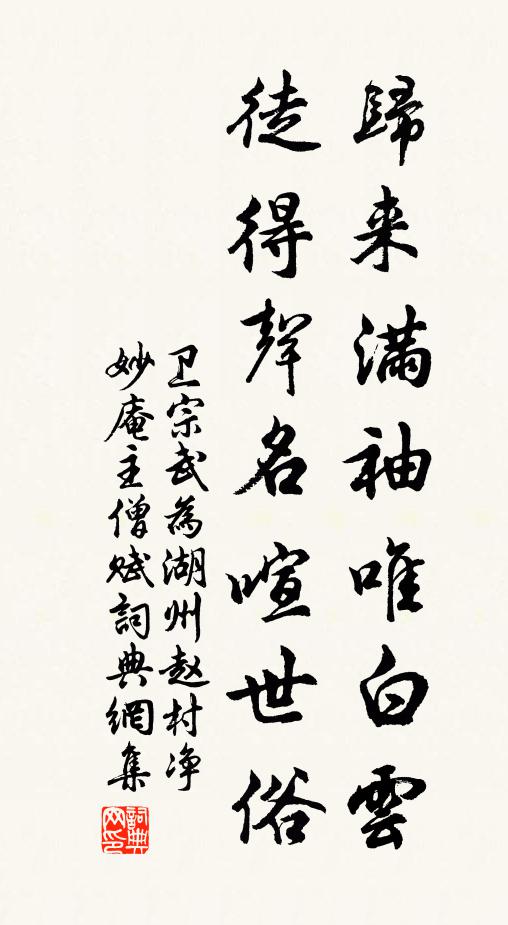 歸来滿袖唯白雲
徒得聲名喧世俗
卫宗武為湖州赵村净
妙庵主僧赋詞典網集
詞典网印